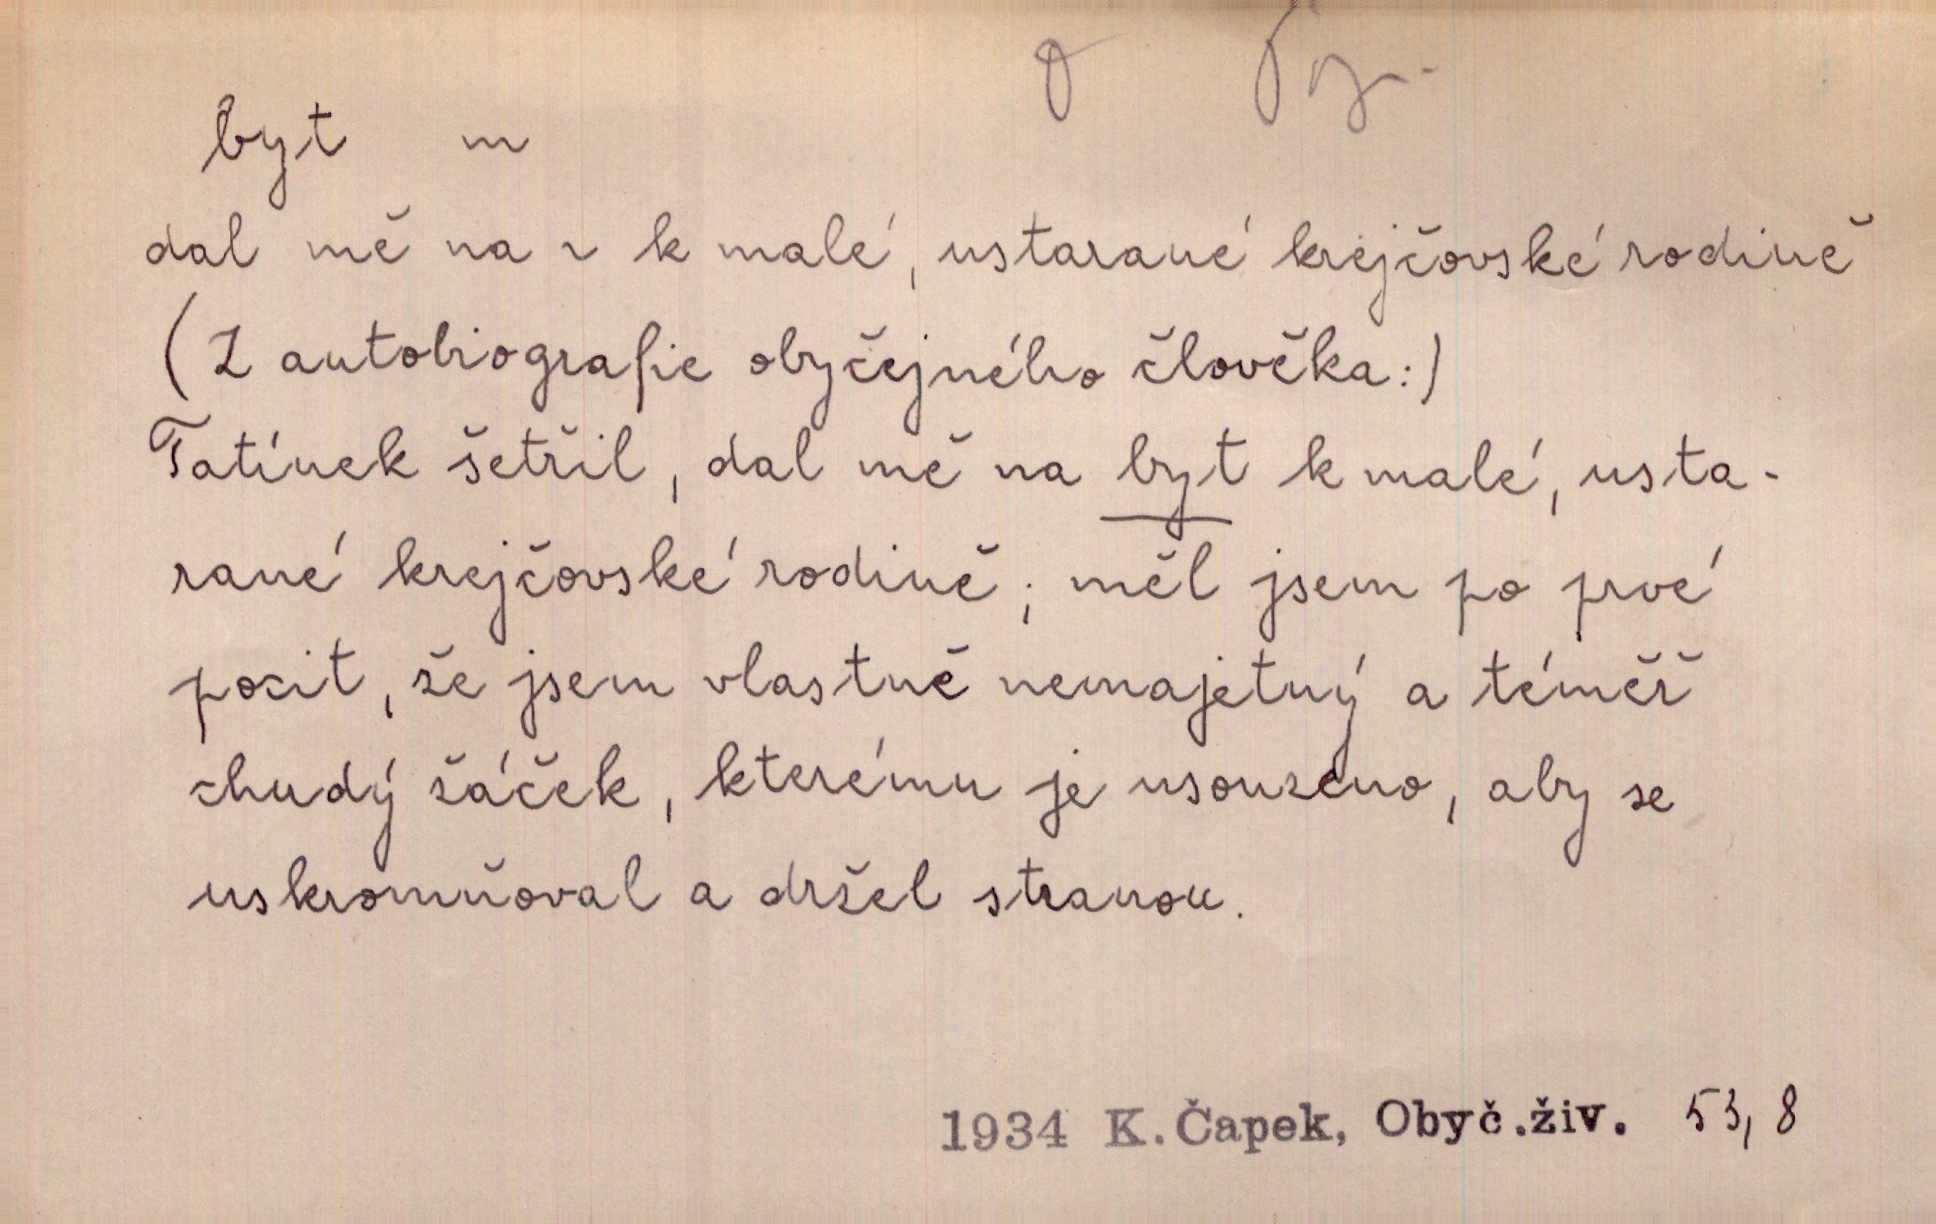 byt m
dal mě na ~ k malé, ustarané krejčovské rodině
(Z autobiografie obyčejného člověka:)
Tatínek šetřil, dal mě na byt k malé, usta-
rané krejčovské rodině; měl jsem po prvé
pocit, že jsem vlastně nemajetný a téměř
chudý žáček, kterému je usouzeno, aby se
uskromňoval a držel stranou.
1934 K. Čapek, Obyč.živ. 53, 8